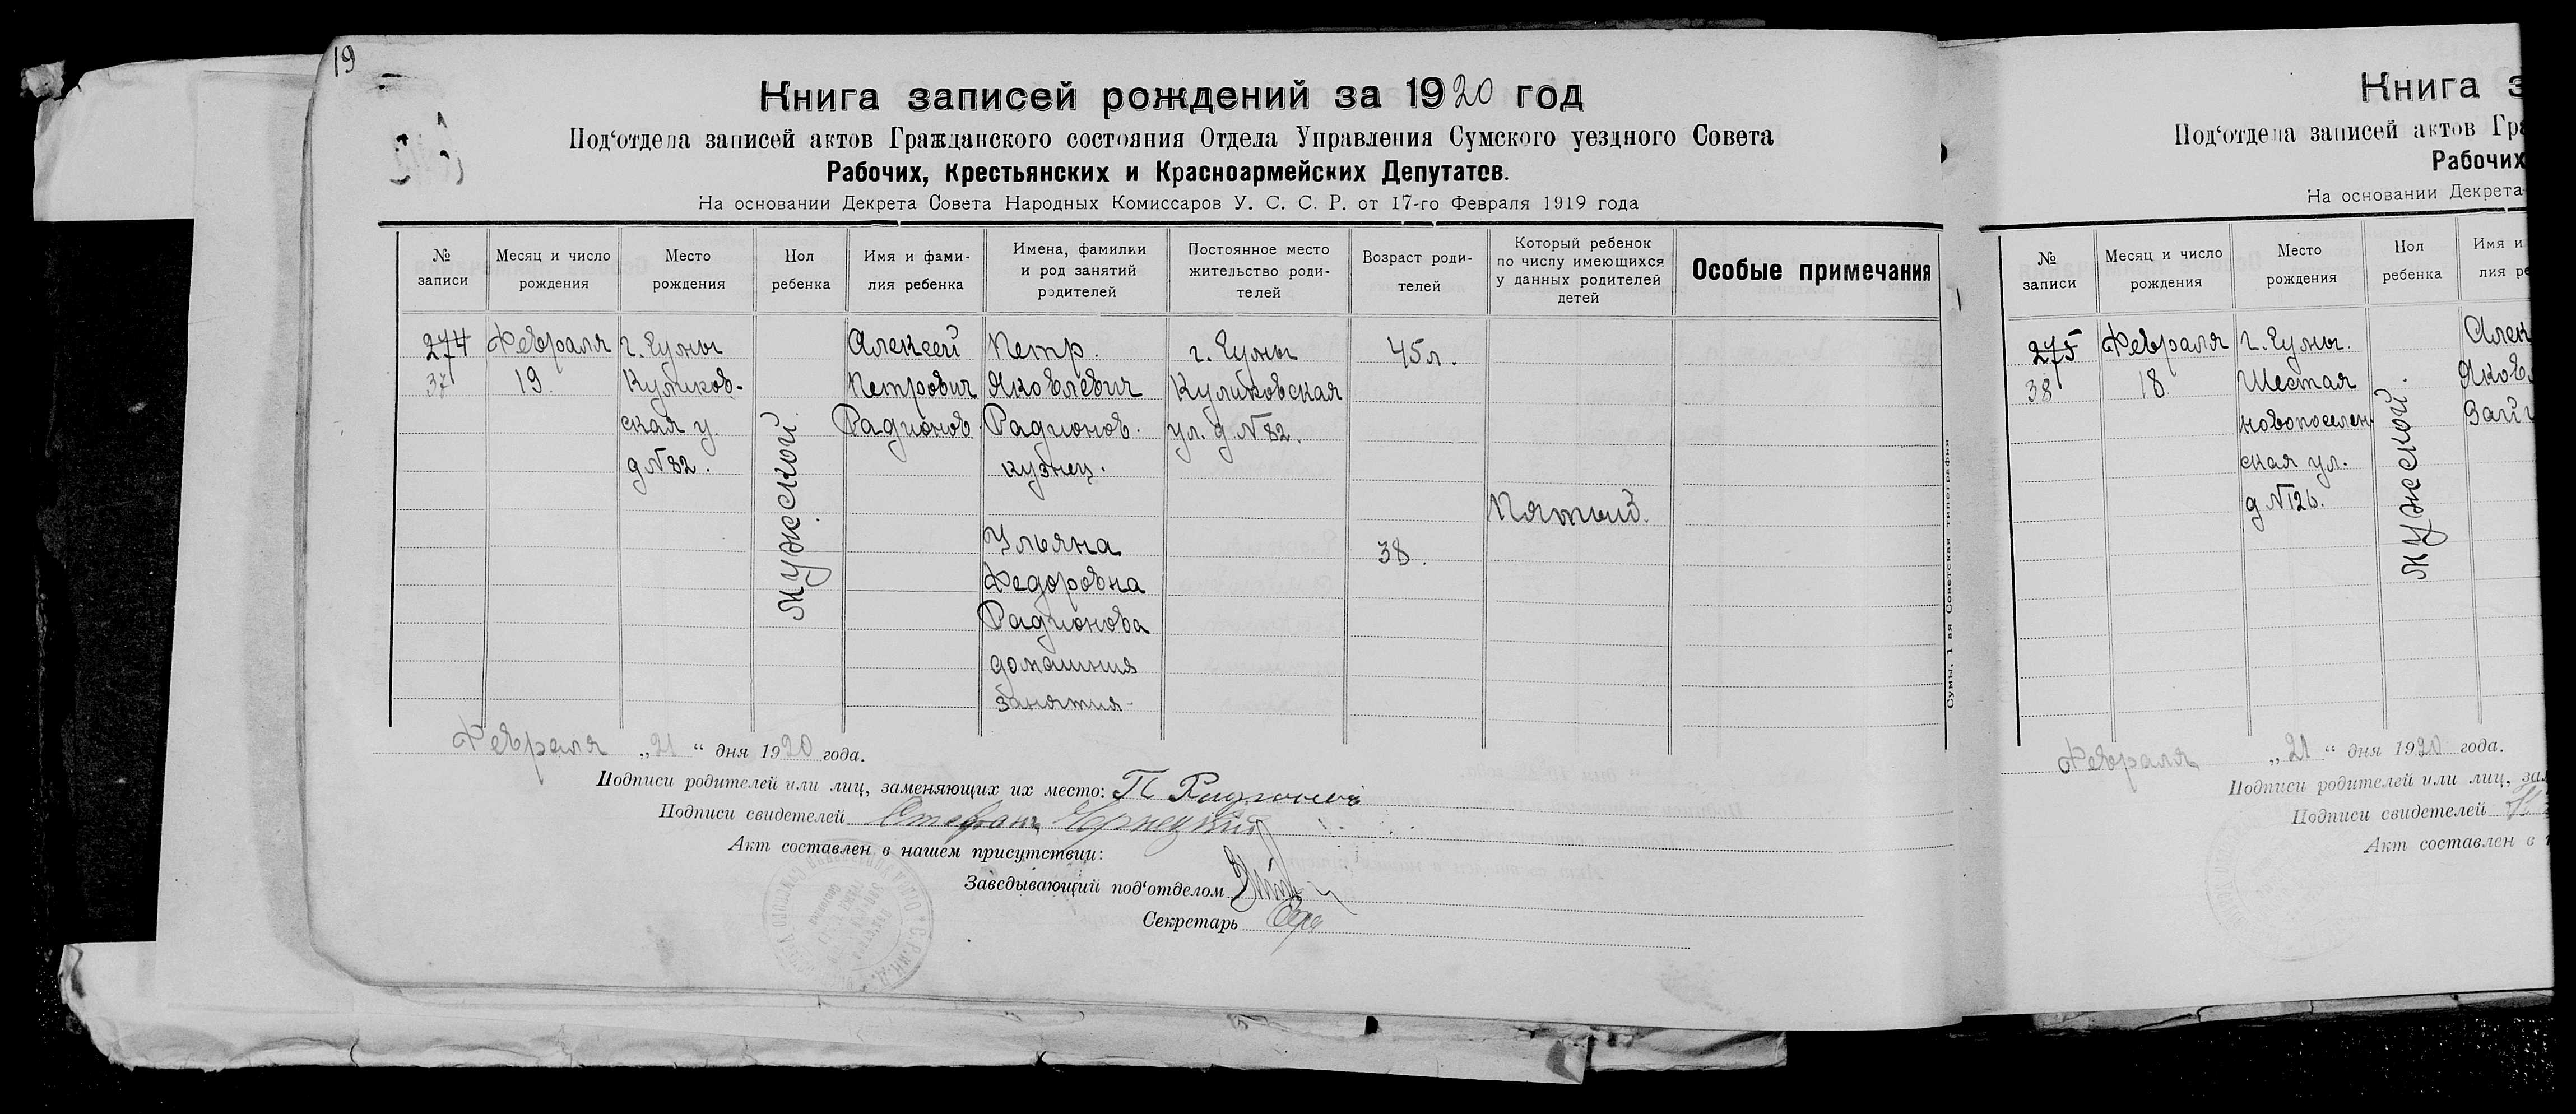 19
Книга записей рождений за 1920 год
Под‘отдела записей актов Гражданского состояния Отдела Управления Сумского уездного Совета
Рабочих, Крестьянских и Красноармейских Депутатов.
На основании Декрета Совета Народных Комиссаров У. С. С. Р. от 17-го Февраля 1919 года
№
записи
Месяц и число
рождения
Место
рождения
Пол
ребенка
Имя и фами-
лия ребенка
Имена, фамилии
и род занятий
родителей
Постоянное место
жительство роди-
телей
Возраст роди-
телей
Который ребенок
по числу имеющихся
у данных родителей
детей
Особые примечания
274
37
Февраля
19.
г. Сумы
Куликов-
ская у.
д №82.
мужеской
Алексей
Петрович
Радионов
Петр.
Яковлевич
Радионов.
кузнец.
Ульяна
Федоровна
Радионова
домашния
занятия-
г. Сумы
Куликовская
ул. д. №82.
45л.
38.
Пятый.
Февраля „21“ дня 1920 года.
Подписи родителей или лиц, заменяющих их место: П Радионовъ
Подписи свидетелей Стефанъ
Акт составлен в нашем присутствии:
Заведывающий под‘отделом
Секретарь
Сумы, 1-ая Советская типография
Книга з
Под‘отдела записей актов Гра
Рабочих
На основании Декрета
№
записи
Месяц и число
рождения
Место
рождения
Пол
ребенка
Имя и
лия ре
275
38
Февраля
18
г. Сумы.
Шестая
новопоселен
ская ул.
д №126.
мужеской.
Алек
Яковл
Февраля „21“ дня 1920 года.
Подписи родителей или лиц, зам
Подписи свидетелей
Акт составлен в н